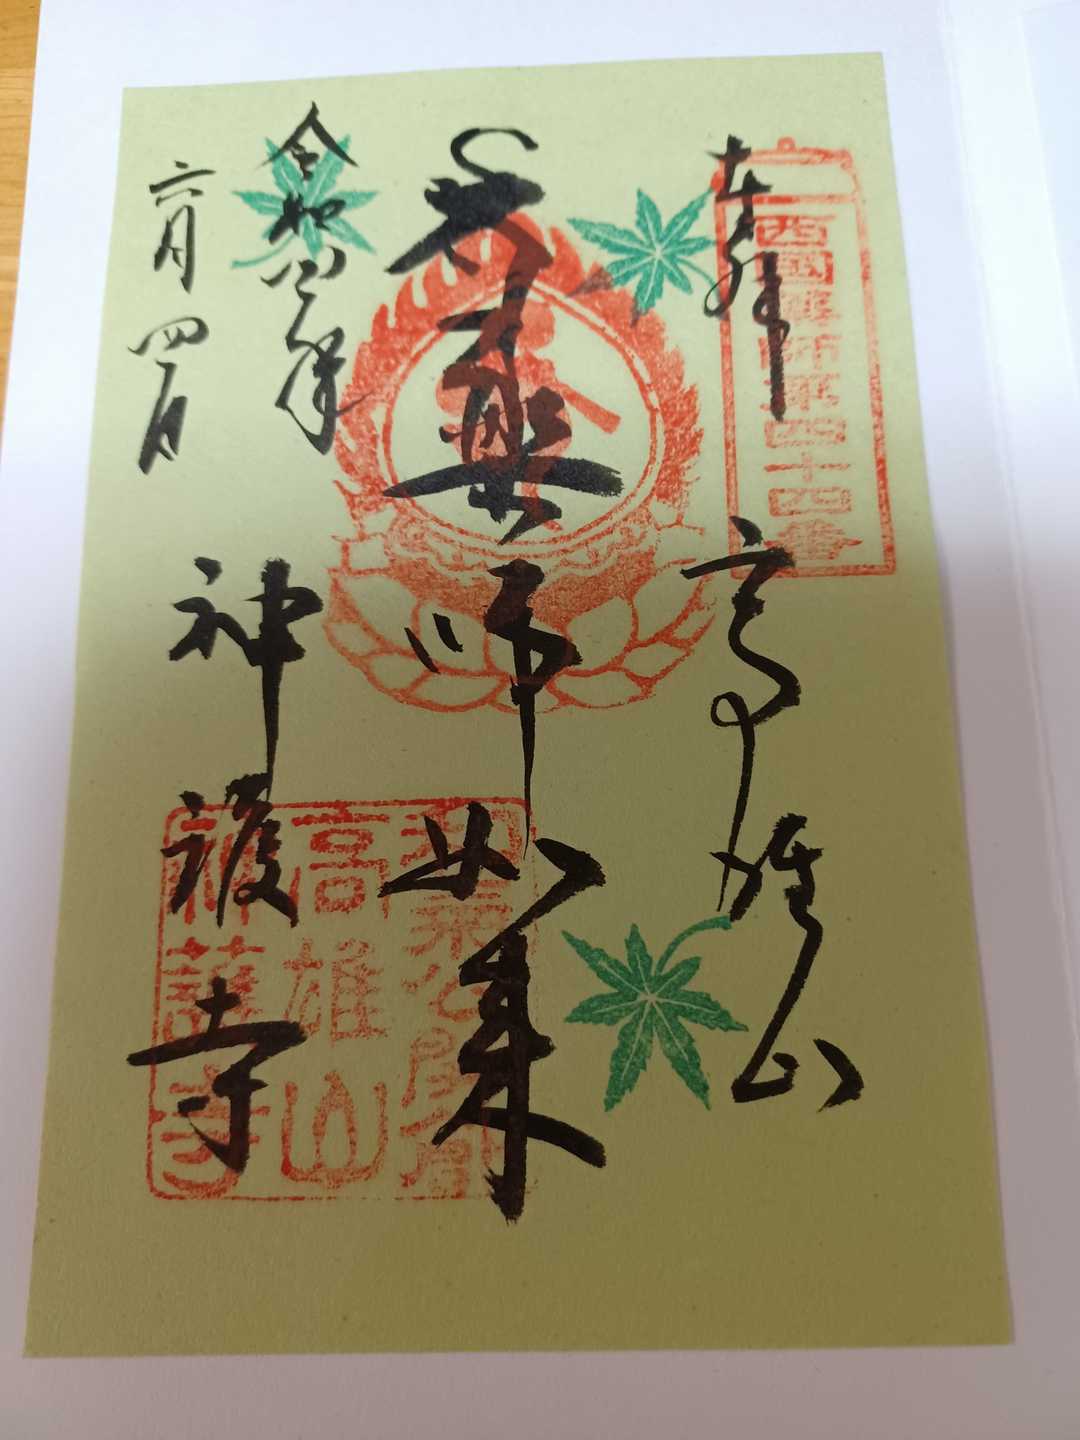 奉拝
西国薬師第四十四番
高雄山
薬師如来
令和 年
六月四日
神護寺
高雄山
神護寺